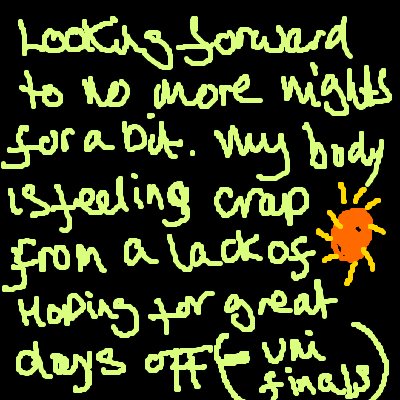 Looking forward
to no more nights
for a bit. My body
is feeling crap
from a lack of
Hoping for great
days off (- uni
finals)